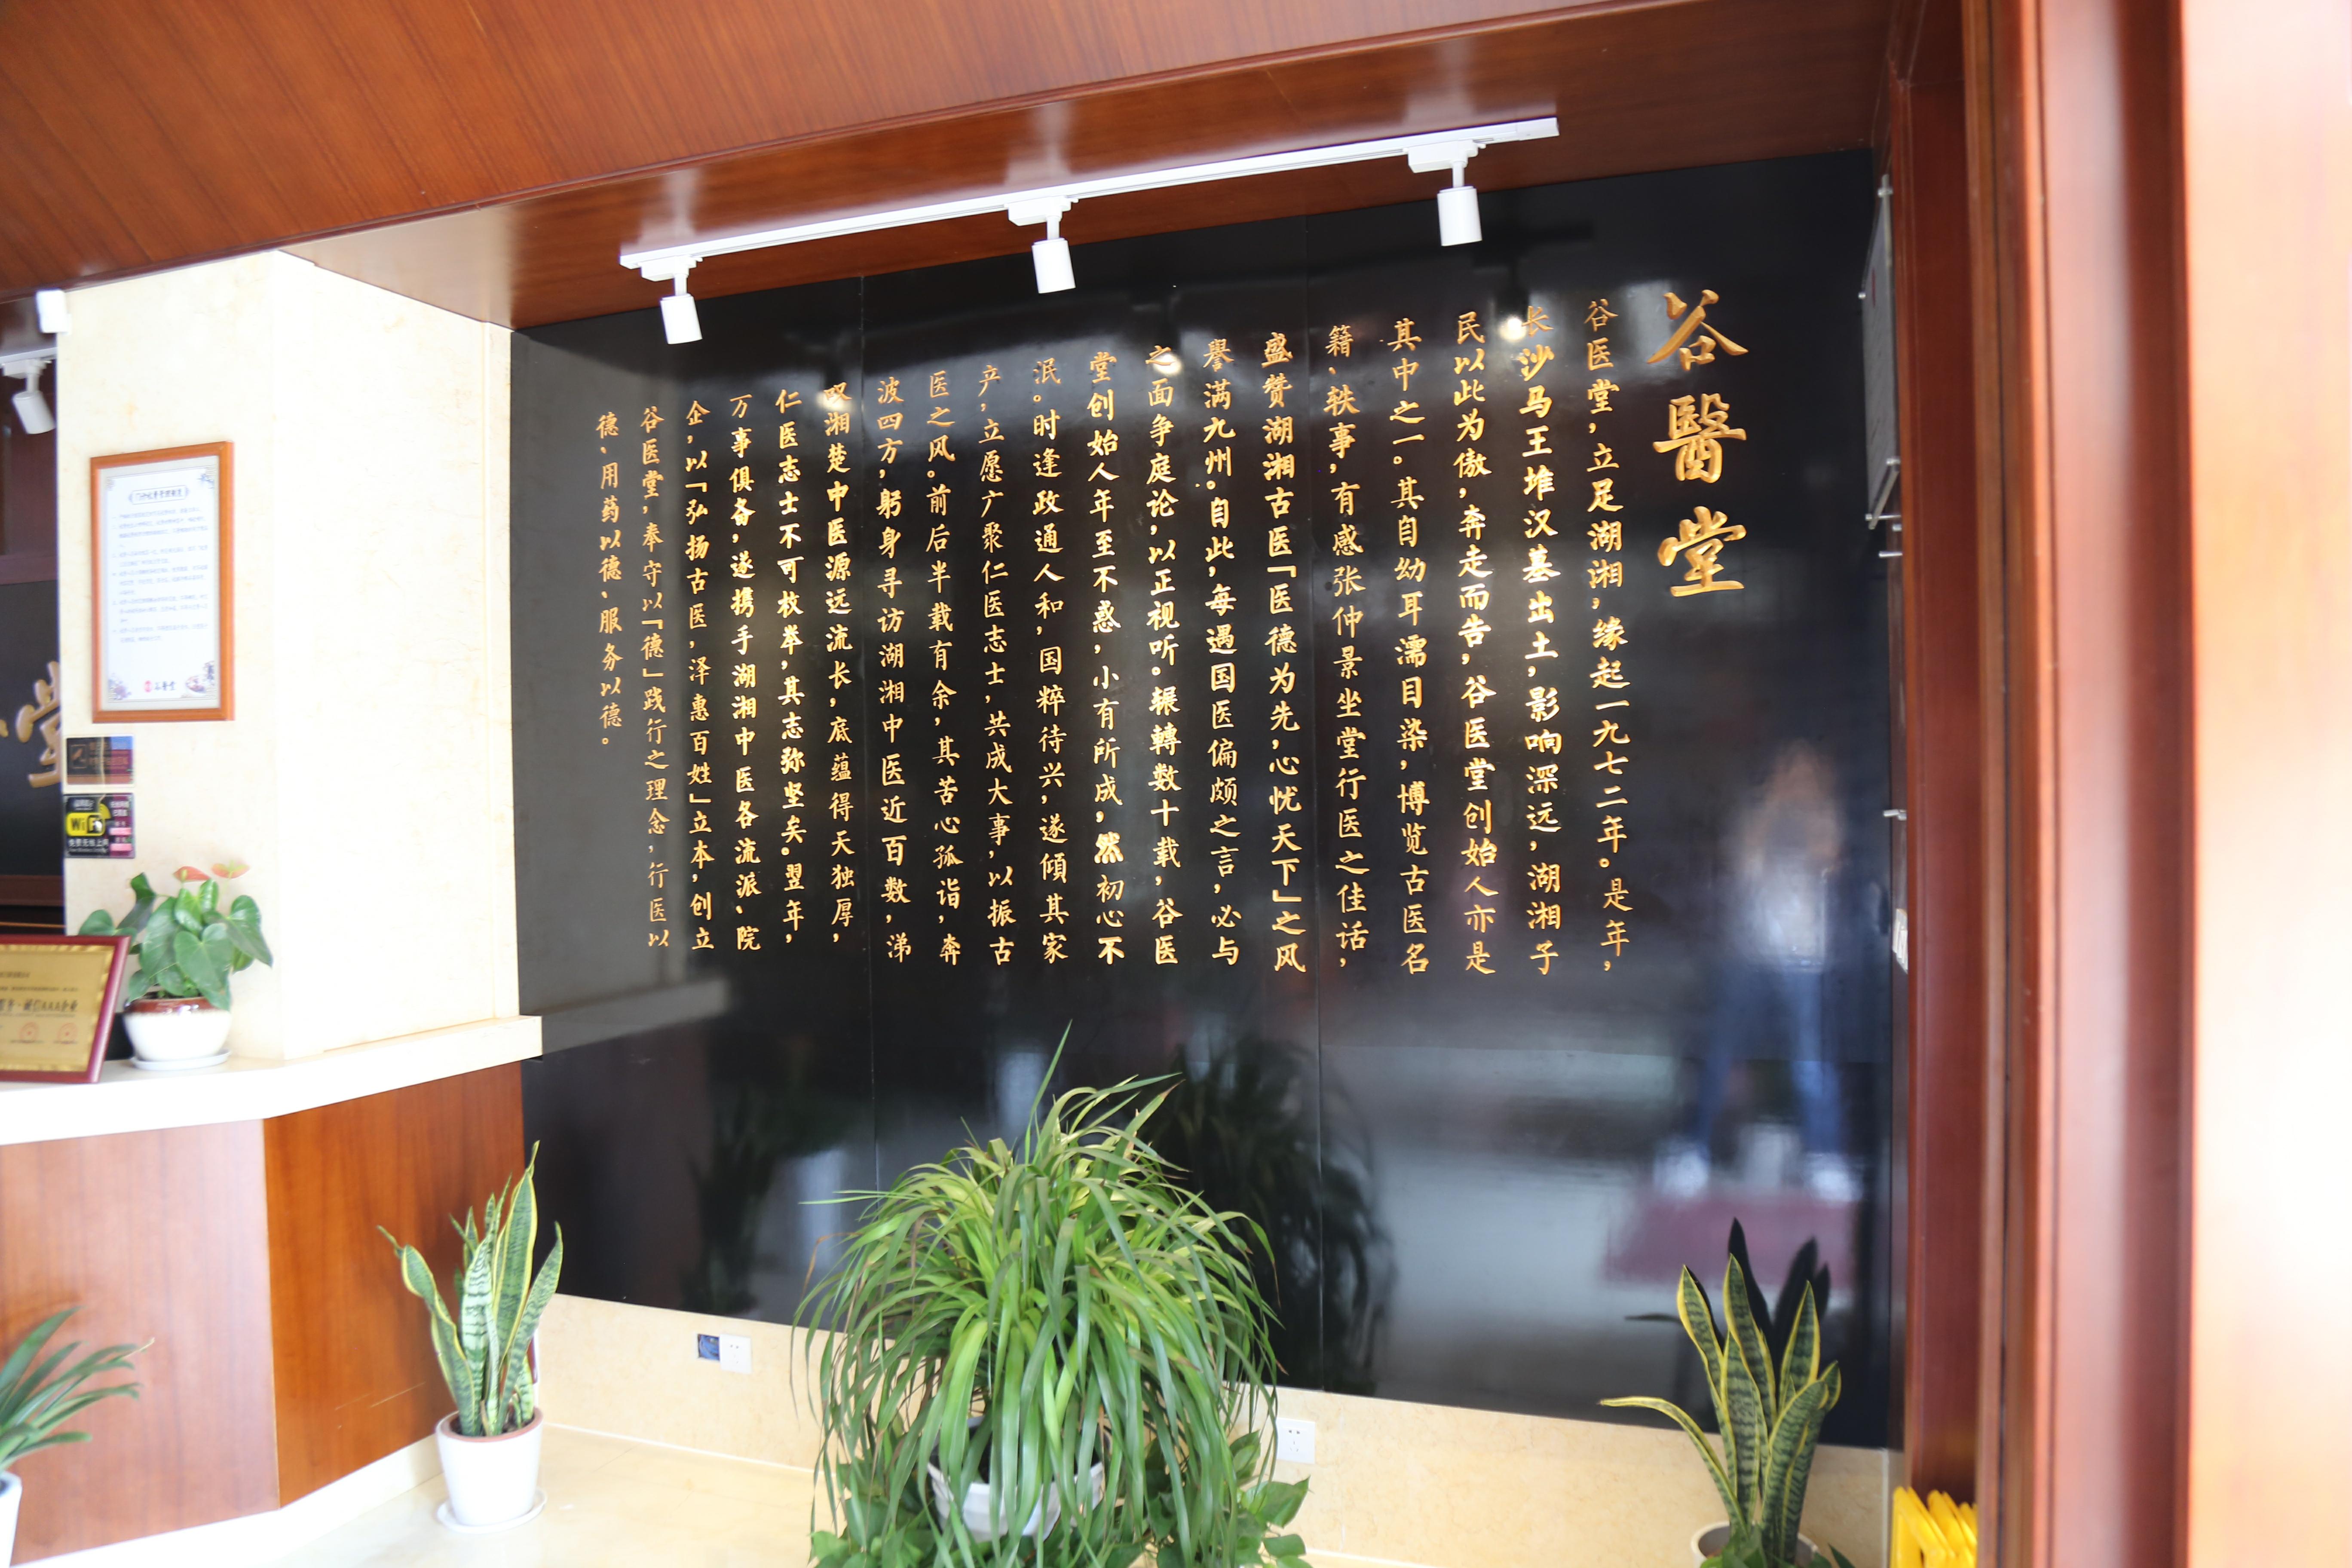 谷醫堂
谷医堂,立足湖湘,缘起一九七二年。是年,
长沙马王堆汉墓出土,影响深远,湖湘子
民以此为傲,奔走而告,谷医堂创始人亦是
其中之一。其自幼耳濡目染,博览古医名
籍、轶事,有感张仲景坐堂行医之佳话,
盛赞湖湘古医「医德为先,心忧天下」之风
誉满九州。自此,每遇国医偏颇之言,必与
之面争庭论,以正视听。辗轉数十载,谷医
堂创始人年至不惑,小有所成,然初心不
泯。时逢政通人和,国粹待兴,遂倾其家
产,立愿广聚仁医志士,共成大事,以振古
医之风。前后半载有余,其苦心孤诣,奔
波四方,躬身寻访湖湘中医近百数,涕
叹湘楚中医源远流长,底蕴得天独厚,
仁医志士不可枚举,其志弥坚矣。翌年,
万事俱备,遂携手湖湘中医各流派、院
企,以「弘扬古医,泽惠百姓」立本,创立
谷医堂,奉守以「德」践行之理念,行医以
德、用药以德、服务以德。
堂
谷醫堂
WiFi
诚信AAA企业